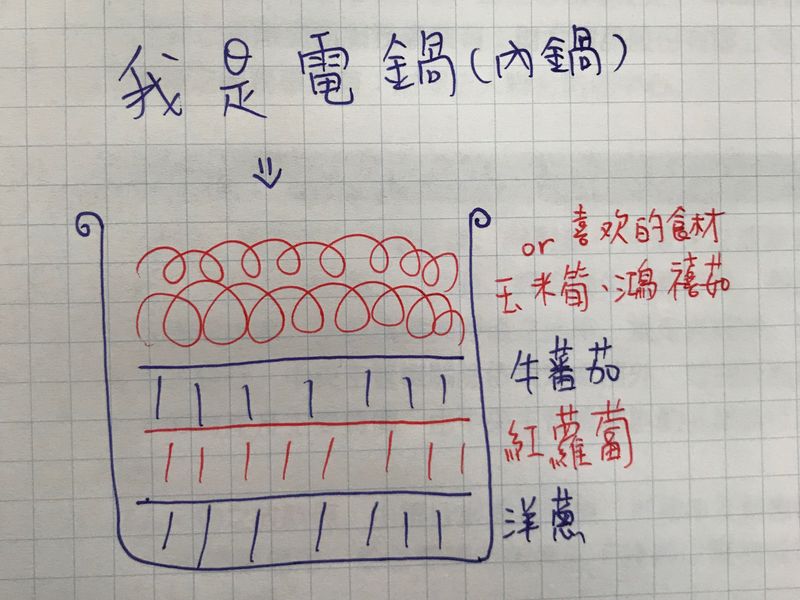 我是電鍋(內鍋)
or 喜欢的食材
玉米筍、鴻禧菇
牛蕃茄
紅蘿蔔
洋蔥